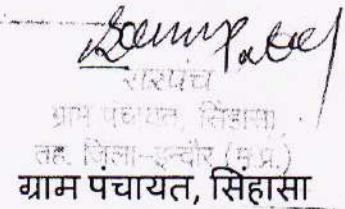 सरपंच
ग्राम पंचायत, सिंहासा
तह. जिला-इन्दौर (म.प्र.)
ग्राम पंचायत, सिंहासा